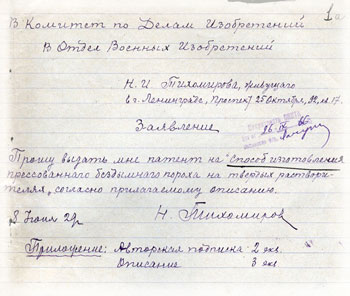 1
В Комитет по Делам Изобретений
В Отдел Военных Изобретений
Н. И. Тихомирова, живущего
в г. Ленинграде, Проспект 25 Октября, 92, кв. 17.
Заявление
Прошу выдать мне патент на "Способ изготовления
прессованного бездымного пороха на твердых раствори-
телях", согласно прилагаемому описанию.
8 Июня 29 г.
Н. Тихомиров
Приложение: Авторская подписка 2 экз.
Описание 3 экз.